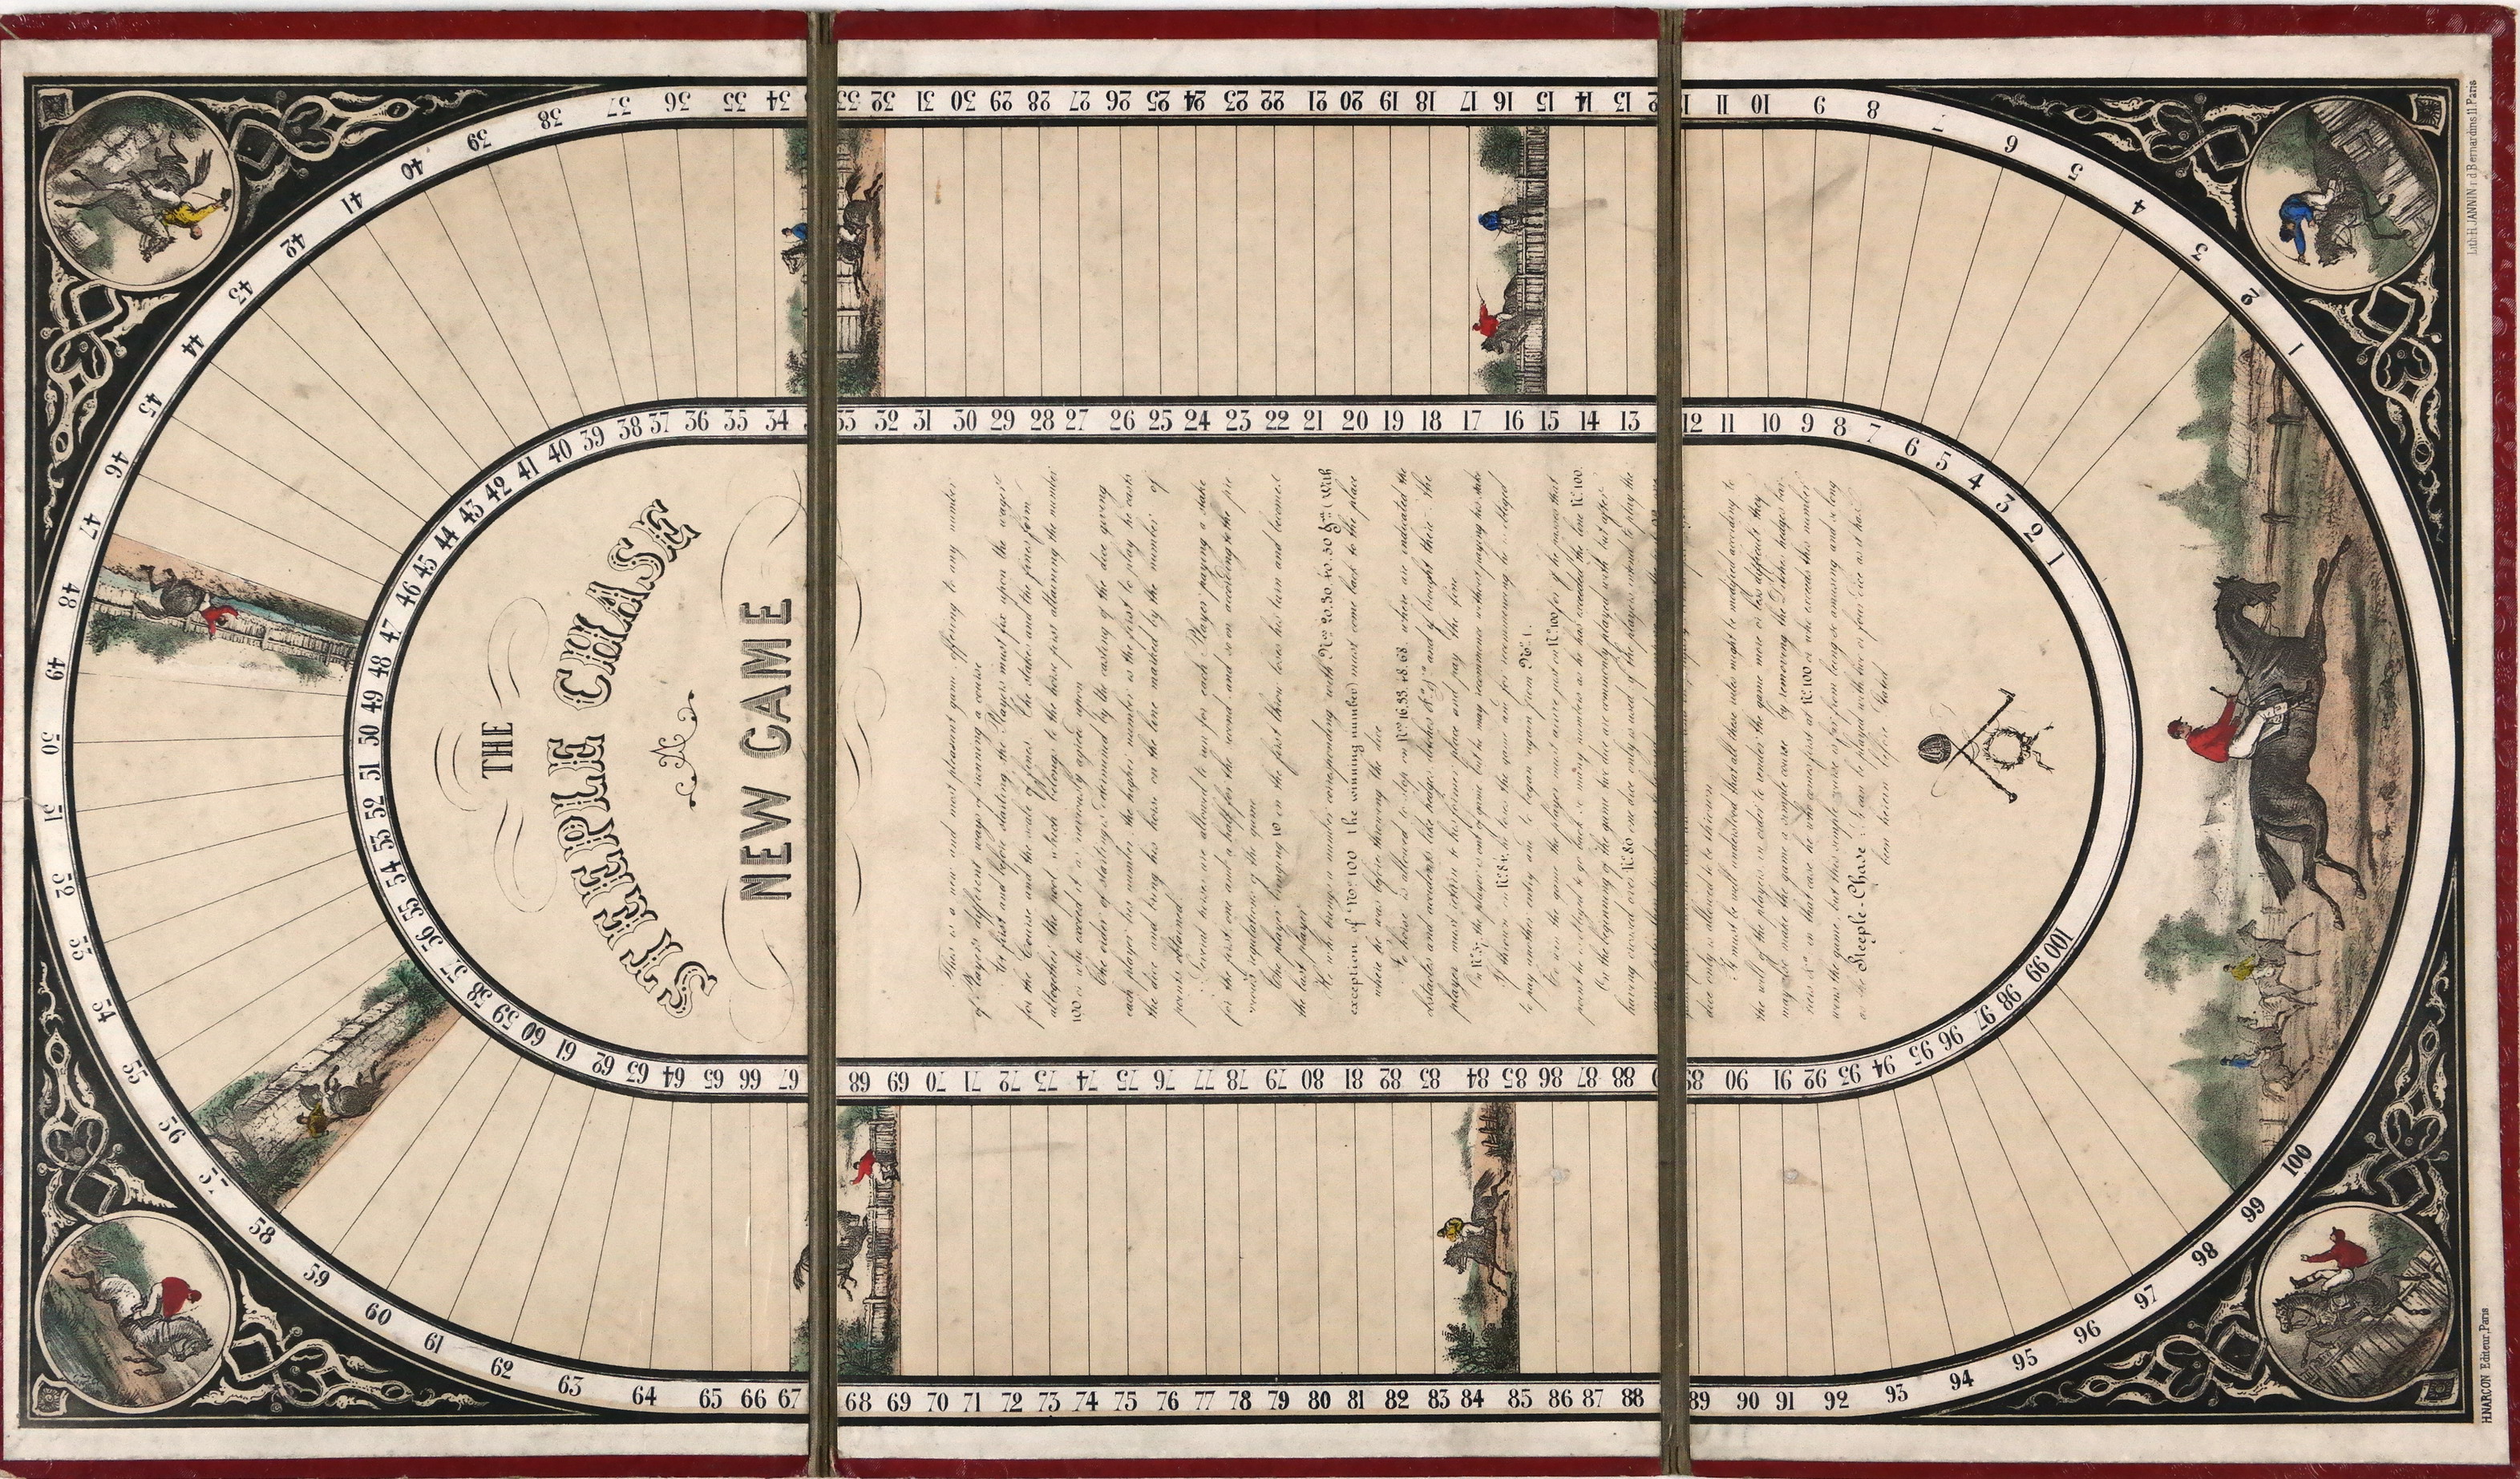 THE
STEEPLE CHASE
NEW GAME
This is a new and most pleasant game offering to any number
of Players different ways of running a course
At first and before starting the Players must fix upon the wages
for the Course and the scale of fines. The stakes and the fines form
altogether the pool which belongs to the horse first attaining the number
100 or who exceed it as previously agreed upon
The order of starting is determined by the casting of the dice giving
each player his number the higher number is the first to play he casts
the dice and bring his horse on the line marked by the number of
points obtained
Several horses are allowed to run for each Player paying a stake
for the first one and a half for the second and so on according to the pre
vious regulations of the game
The player bringing 10 on the first throw loses his turn and becomes
the last player
He who brings a number corresponding with Nos 20.30.40.50 &ca (with
exception of No 100 the winning number) must come back to the place
where he was before throwing the dice
No horse is allowed to stop on Nos 16.33.48.68 where are indicated the
obstacles and accidents like hedges ditches &ca &ca and if brought there the
player must return to his former place and pay the fine
On No 57 the player is out of game but he may recommence without paying his stake
If thrown on No 84 he loses the game and for recommencing he is obliged
to pay another entry and to began again from No 1.
To win the game the player must arrive just on No 100 for if he passes that
point he is obliged to go back as many numbers as he has exceeded the line No 100.
On the beginning of the game two dice are commonly played with but after
having crossed over No 80 one dice only is used if the players intend to play the
dice only is allowed to be thrown
It must be well understood that all these rules might be modified according to
the will of the players in order to render the game more or less difficult they
may also make the game a simple course by removing the Ditches hedges bar
riers &ca in that case he who comes first at No 100 or who exceeds this number
wins the game, but this simple course is far from being so amusing and so long
as the Steeple-Chase it can be played with two or four dice as it has
been herein before stated
1 2 3 4 5 6 7 8 9 10 11 12 13 14 15 16 17 18 19 20 21 22 23 24 25 26 27 28 29 30 31 32 33 34 35 36 37 38 39 40 41 42 43 44 45 46 47 48 49 50 51 52 53 54 55 56 57 58 59 60 61 62 63 64 65 66 67 68 69 70 71 72 73 74 75 76 77 78 79 80 81 82 83 84 85 86 87 88 89 90 91 92 93 94 95 96 97 98 99 100
1 2 3 4 5 6 7 8 9 10 11 12 13 14 15 16 17 18 19 20 21 22 23 24 25 26 27 28 29 30 31 32 33 34 35 36 37 38 39 40 41 42 43 44 45 46 47 48 49 50 51 52 53 54 55 56 57 58 59 60 61 62 63 64 65 66 67 68 69 70 71 72 73 74 75 76 77 78 79 80 81 82 83 84 85 86 87 88 89 90 91 92 93 94 95 96 97 98 99 100
H.NARCON Editeur, Paris
Lith. H. JANNIN r. d. Bernardins 11. Paris